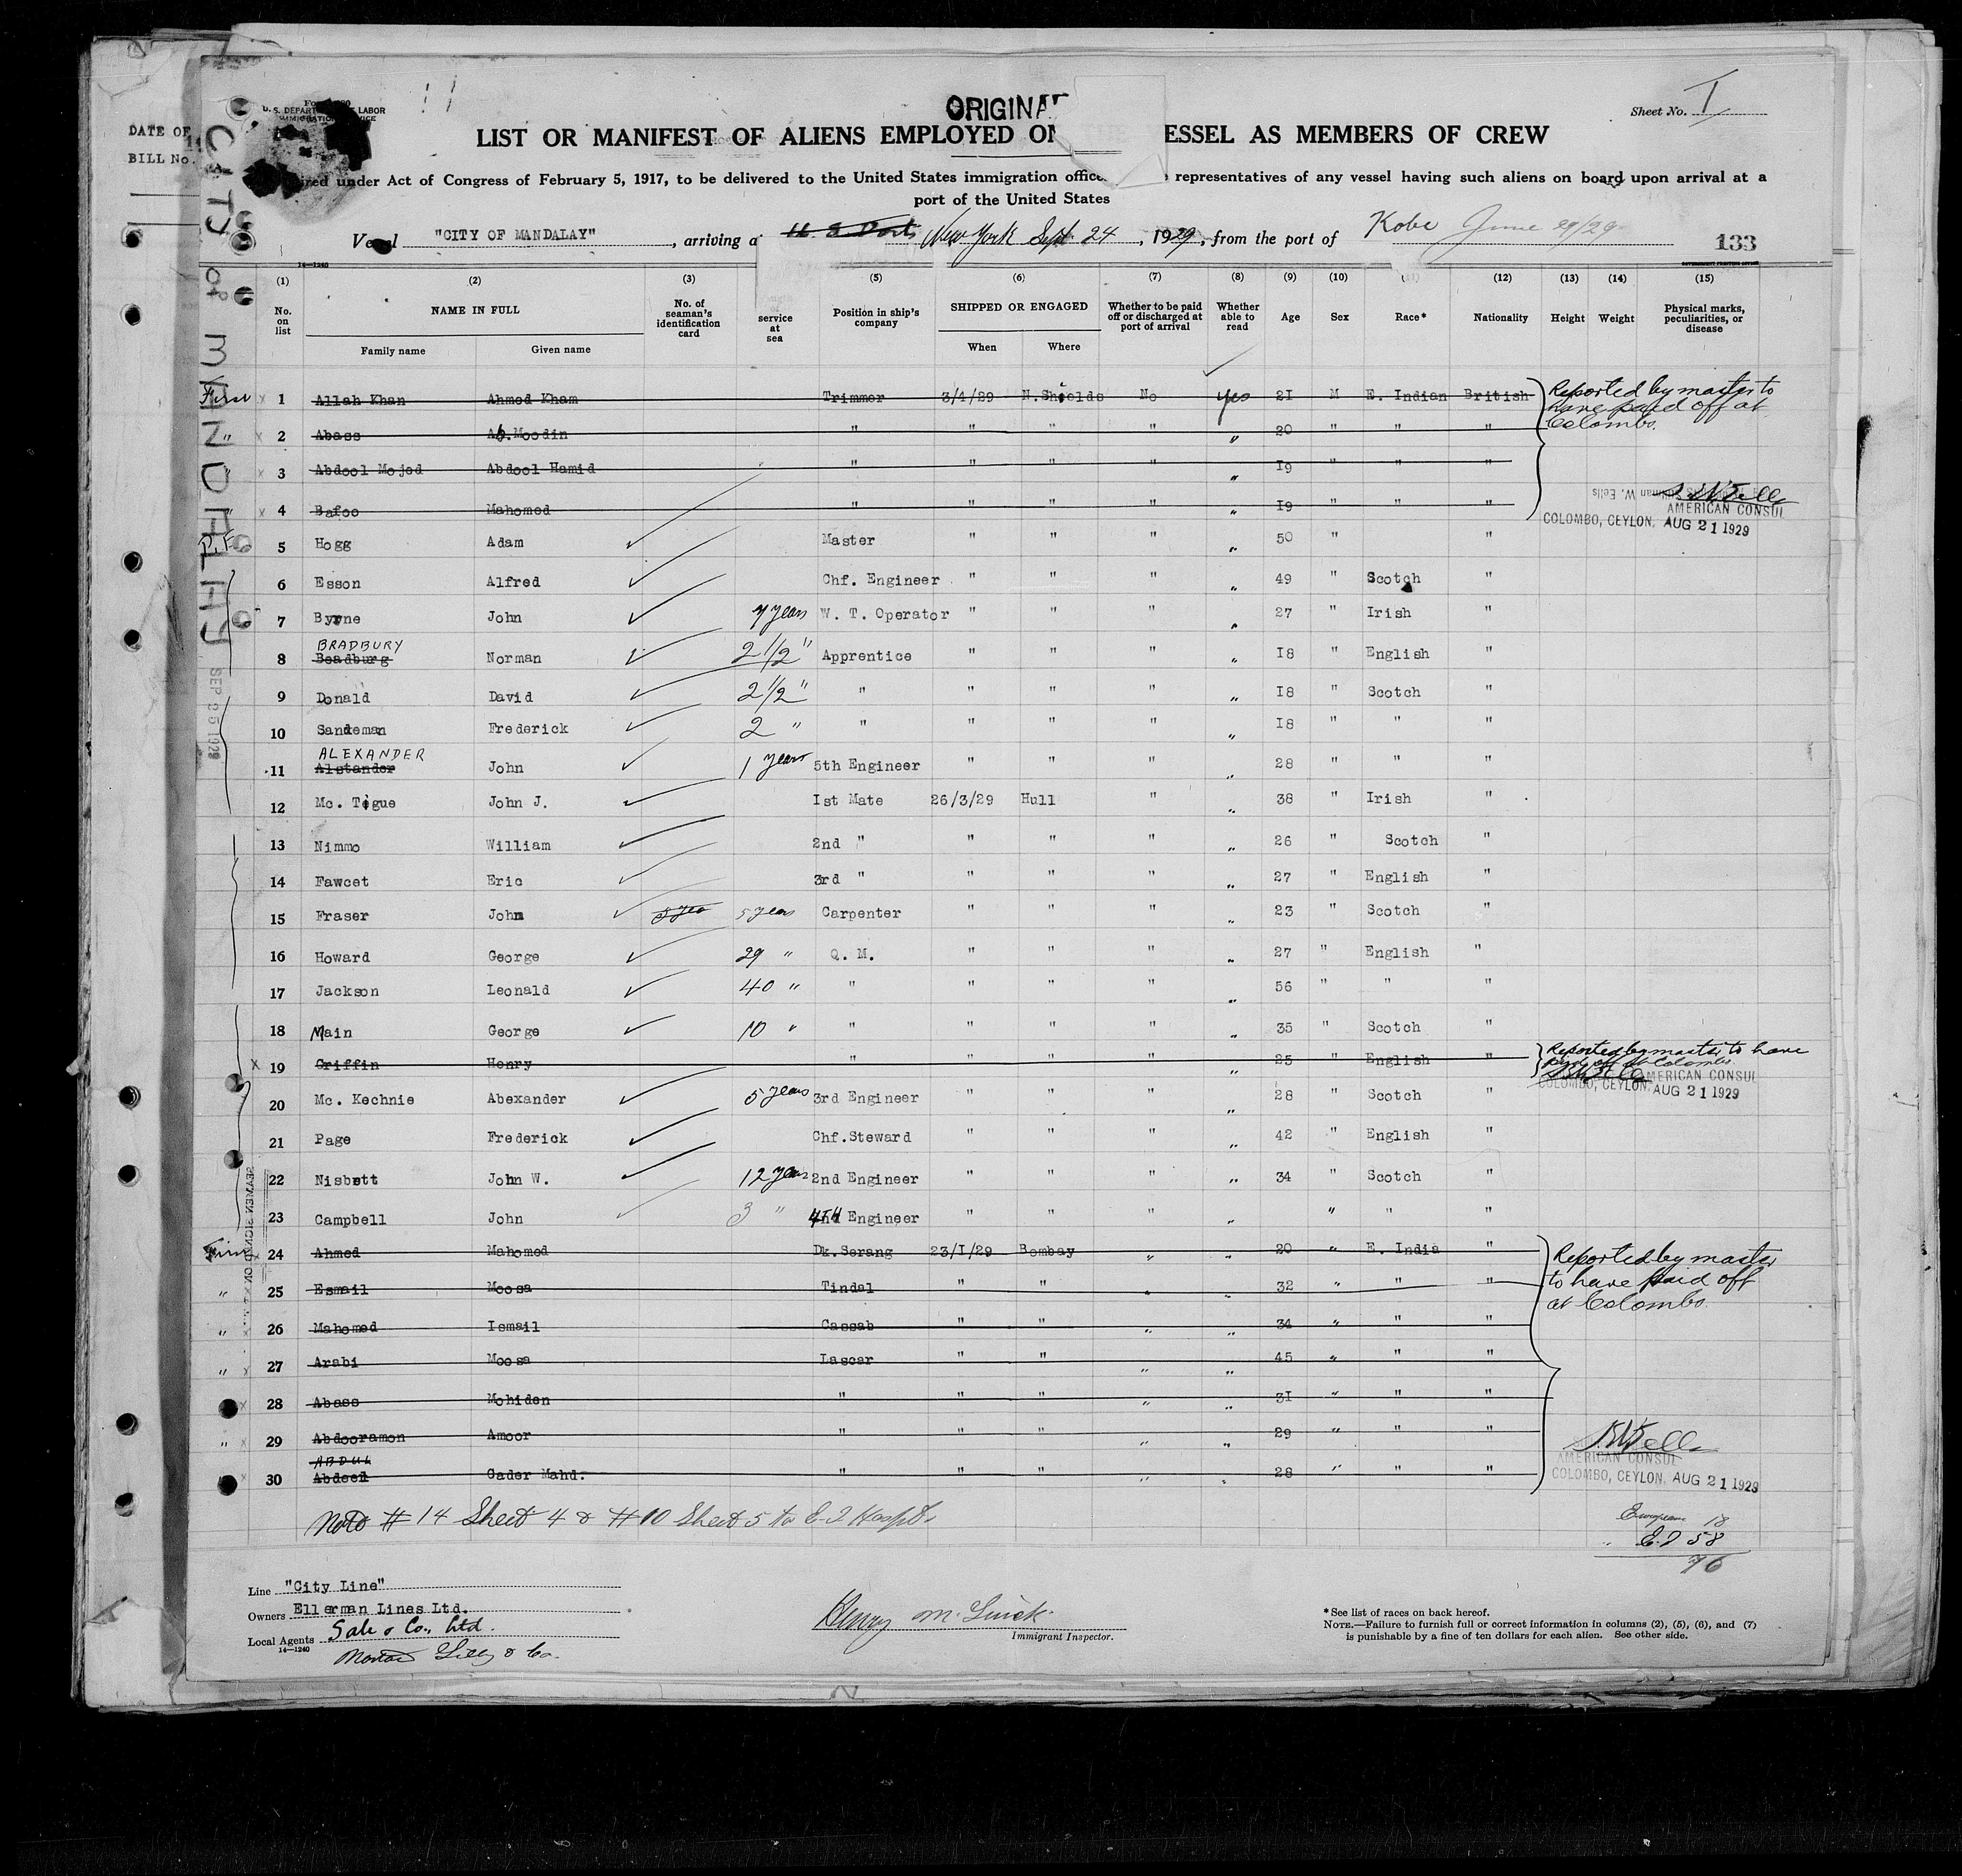 ORIGINAL
Sheet No. 1
U. S. DEPARTMENT OF LABOR
IMMIGRATION SERVICE
DATE OF
BILL No.
LIST OR MANIFEST OF ALIENS EMPLOYED ON THE VESSEL AS MEMBERS OF CREW
under Act of Congress of February 5, 1917, to be delivered to the United States immigration representatives of any vessel having such aliens on board upon arrival at a
port of the United States
Vessel "CITY OF MANDALAY", arriving at U. S Ports New York Sept 24, 1929, from the port of Kobe June 29/29
133
14—1240
CITY OF MANDALAY
SEP 25 1929
(1) (2) (3) (5) (6) (7) (8) (9) (10) (11) (12) (13) (14) (15)
No. on list NAME IN FULL Family name Given name No. of seaman's identification card service at sea Position in ship's company SHIPPED OR ENGAGED When Where Whether to be paid off or discharged at port of arrival Whether able to read Age Sex Race* Nationality Height Weight Physical marks, peculiarities, or disease
First x 1 Allah Khan Ahmed Kham Trimmer 3/4/29 N.Shields No yes 21 M E. Indian British
Reported by master to
have paid off at
Colombo.
" x 2 Abass Ab.Moodin " " " " " 20 " " "
" x 3 Abdool Mojed Abdool Hamid " " " " " 19 " " "
" x 4 Bafoo Mahomed " " " " " 19 " " "
AMERICAN CONSUL
COLOMBO, CEYLON. AUG 21 1929
5 Hogg Adam Master " " " " 50 " "
6 Esson Alfred Chf. Engineer " " " " 49 " Scotch "
7 Byrne John 7 years W. T. Operator " " " " 27 " Irish "
BRADBURY
8 Beadburg Norman 2 1/2 " Apprentice " " " " 18 " English "
9 Donald David 2 1/2 " " " " " " 18 " Scotch "
10 Sandeman Frederick 2 " " " " " " 18 " " "
ALEXANDER
11 Alstander John 1 year 5th Engineer " " " " 28 " " "
12 Mc. Tigue John J. 1st Mate 26/3/29 Hull " " 38 " Irish "
13 Nimmo William 2nd " " " " " 26 " Scotch "
14 Fawcet Eric 3rd " " " " " 27 " English "
15 Fraser John 5 yea 5 years Carpenter " " " " 23 " Scotch "
16 Howard George 29 " Q. M. " " " " 27 " English "
17 Jackson Leonald 40 " " " " " " 56 " " "
18 Main George 10 " " " " " " 35 " Scotch "
x 19 Griffin Henry " " " " " 25 " English "
Reported by master to have
paid off at Colombo.
AMERICAN CONSUL
COLOMBO, CEYLON. AUG 21 1929
20 Mc. Kechnie Abexander 5 years 3rd Engineer " " " " 28 " Scotch "
21 Page Frederick Chf.Steward " " " " 42 " English "
22 Nisbett John W. 12 years 2nd Engineer " " " " 34 " Scotch "
23 Campbell John 3 " 4TH Engineer " " " " " " "
24 Ahmed Mahomed Dk.Serang 23/1/29 Bombay " " 20 " E. India "
Reported by master
to have paid off
at Colombo.
" 25 Esmail Moosa Tindal " " " " 32 " " "
" x 26 Mahomed Ismail Cassab " " " " 34 " " "
" x 27 Arabi Moosa Lascar " " " " 45 " " "
x 28 Abass Mohiden " " " " " 31 " " "
" x 29 Abdooramon Amoor " " " " " 29 " " "
ABDUL
x 30 Abdeel Cader Mahd. " " " " " 28 " " "
AMERICAN CONSUL
COLOMBO, CEYLON. AUG 21 1929
Note # 14 Sheet 4 & # 10 Sheet 5 to E-I Hospt.
European 18
" E.I 58
76
Line "City Line"
Owners Ellerman Lines Ltd.
Local Agents Sale & Co., Ltd.
14—1240
Norton Lilly & Co.
Immigrant Inspector.
* See list of races on back hereof.
NOTE.—Failure to furnish full or correct information in columns (2), (5), (6), and (7)
is punishable by a fine of ten dollars for each alien. See other side.